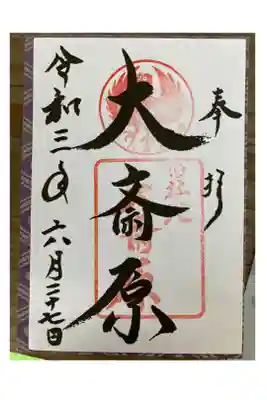 奉拝
大斎原
令和三年六月二十七日